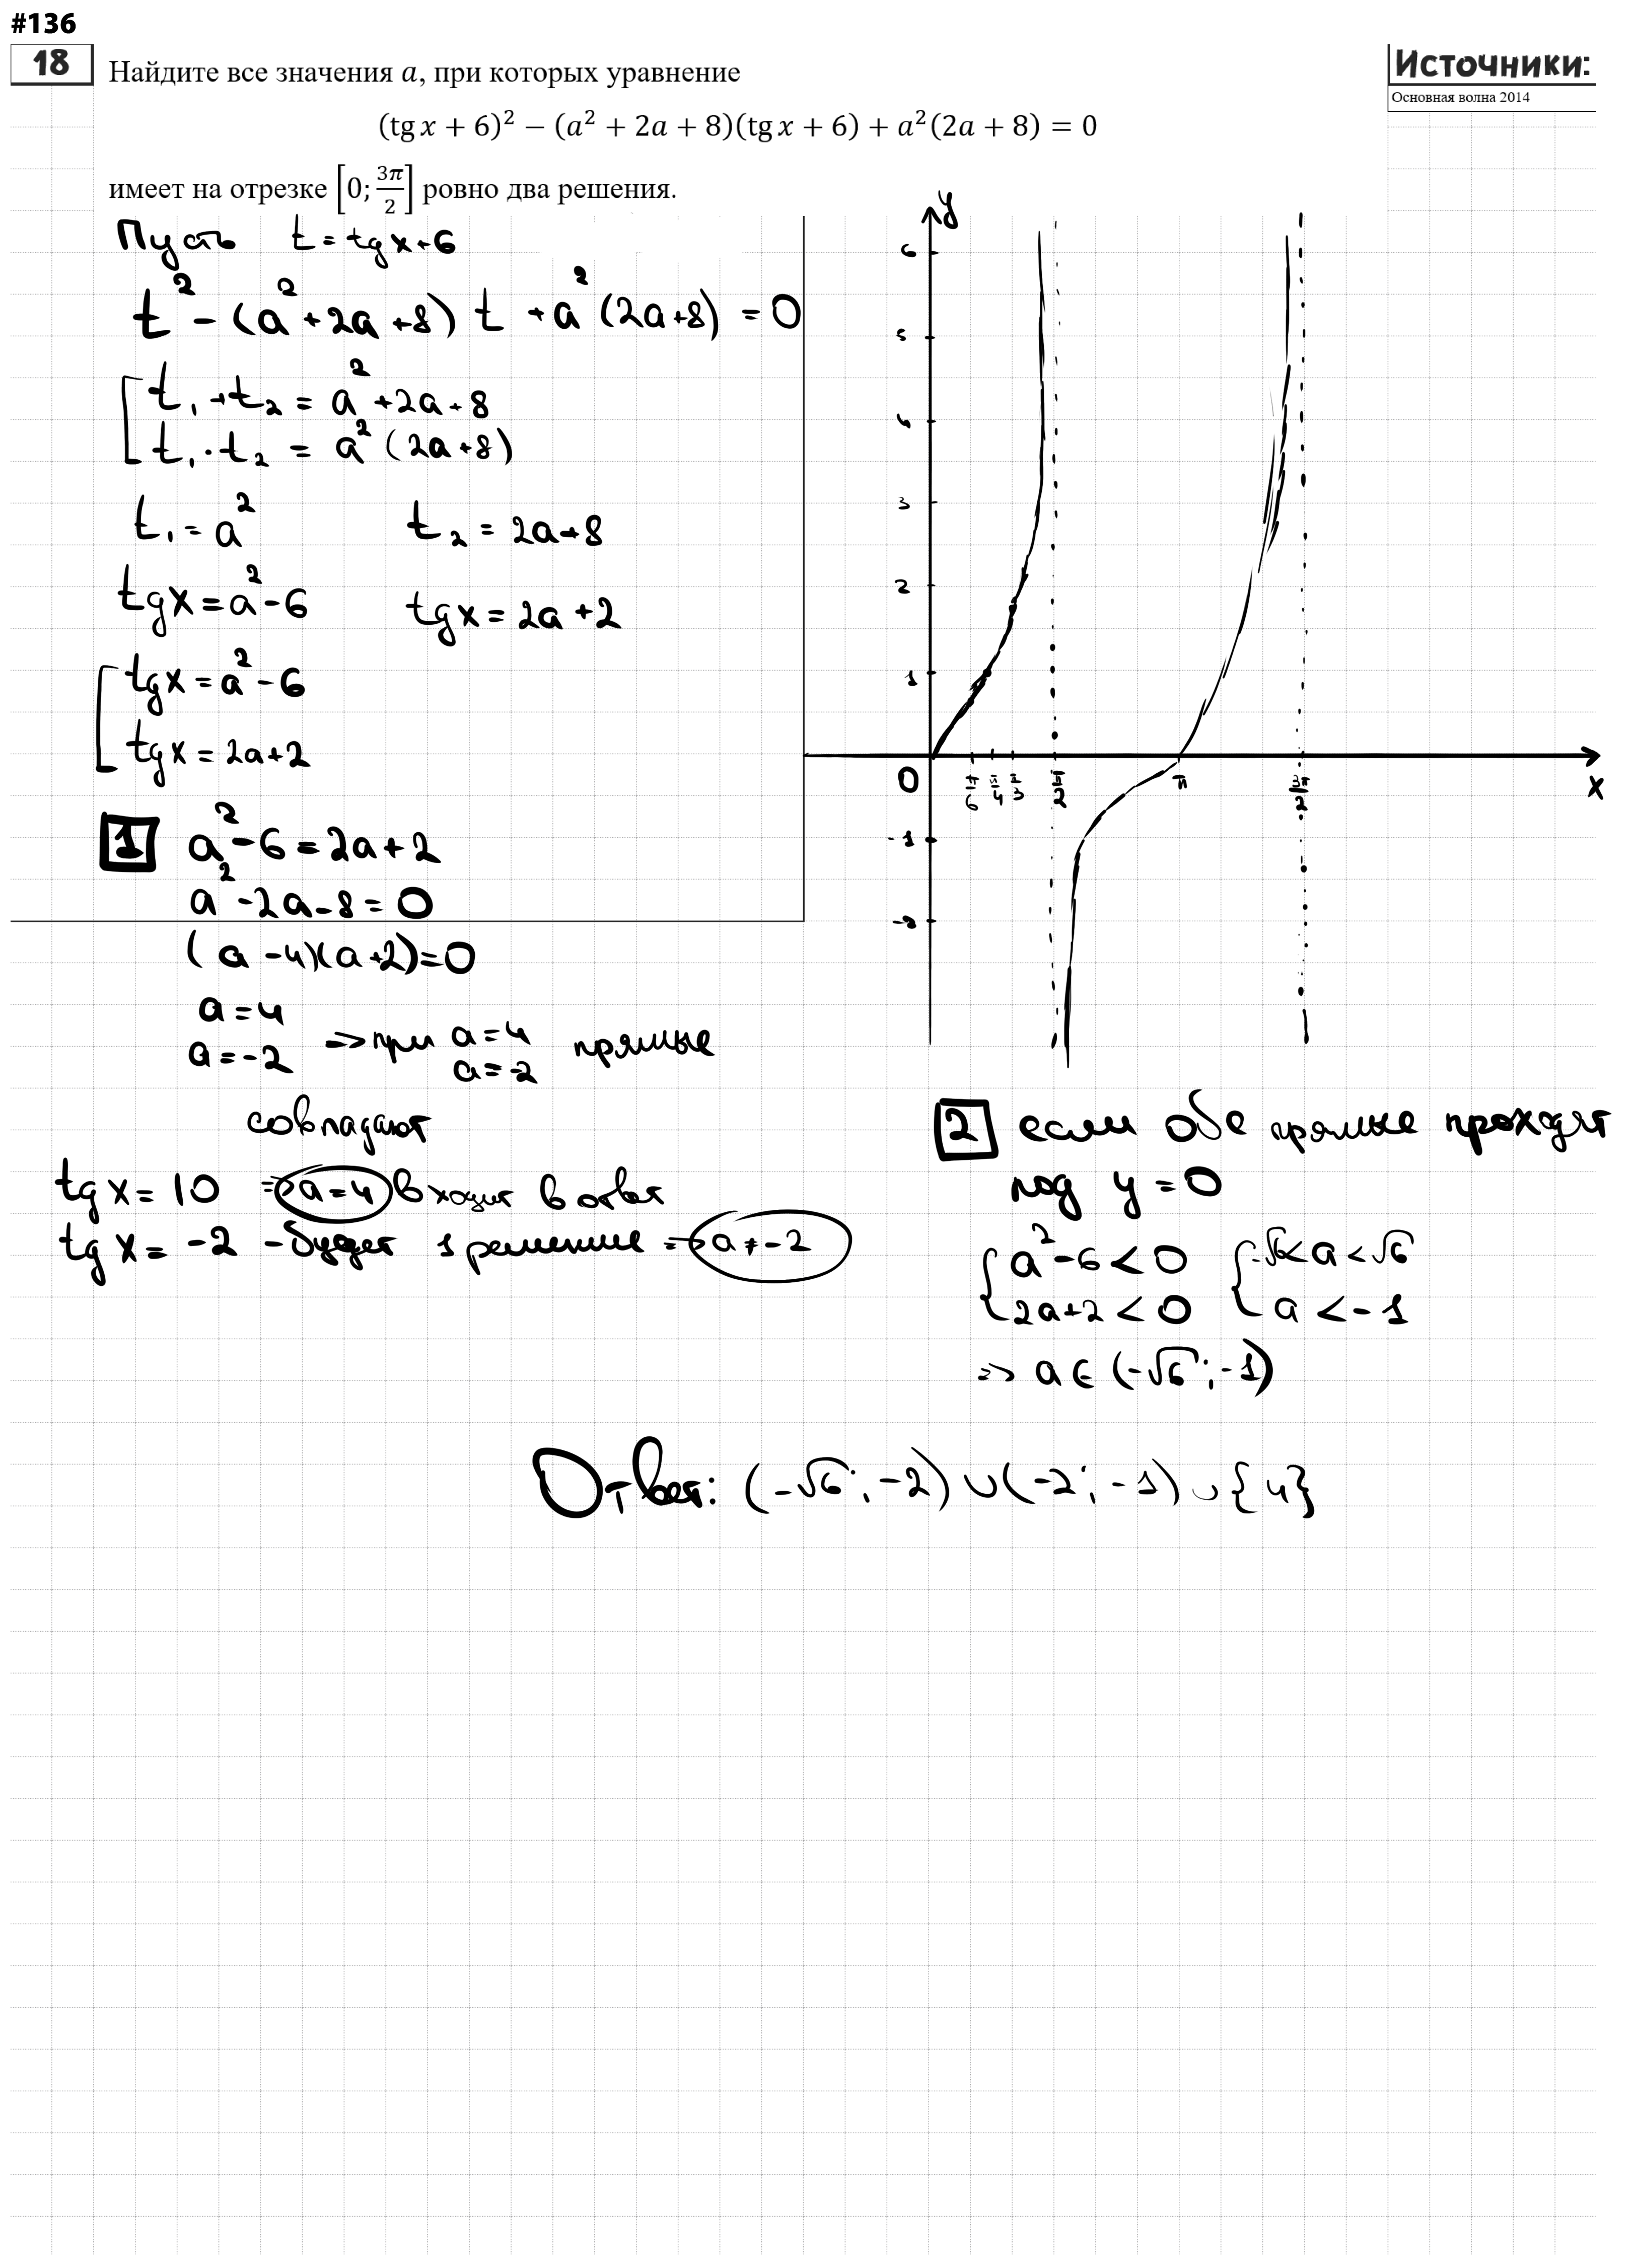 #136
18
Найдите все значения a, при которых уравнение
(tg x + 6)² − (a² + 2a + 8)(tg x + 6) + a²(2a + 8) = 0
имеет на отрезке [0; 3π/2] ровно два решения.
Источники:
Основная волна 2014
Пусть t = tg x + 6
t² − (a² + 2a + 8) t + a² (2a + 8) = 0
[ t₁ + t₂ = a² + 2a + 8
t₁ · t₂ = a² (2a + 8)
t₁ = a² t₂ = 2a + 8
tg x = a² − 6 tg x = 2a + 2
[ tg x = a² − 6
tg x = 2a + 2
1 a² − 6 = 2a + 2
a² − 2a − 8 = 0
(a − 4)(a + 2) = 0
a = 4
a = −2 => при a = 4 a = −2 прямые
совпадают
tg x = 10 => a = 4 входит в ответ
tg x = −2 − будет 1 решение => a ≠ −2
y
6
5
4
3
2
1
0
π/6 π/4 π/3 π/2 π 3π/2
x
-1
-2
2 если обе прямые проходят
под y = 0
{ a² − 6 < 0 { −√6 < a < √6
2a + 2 < 0 a < −1
=> a ∈ (−√6; −1)
Ответ: (−√6; −2) ∪ (−2; −1) ∪ {4}